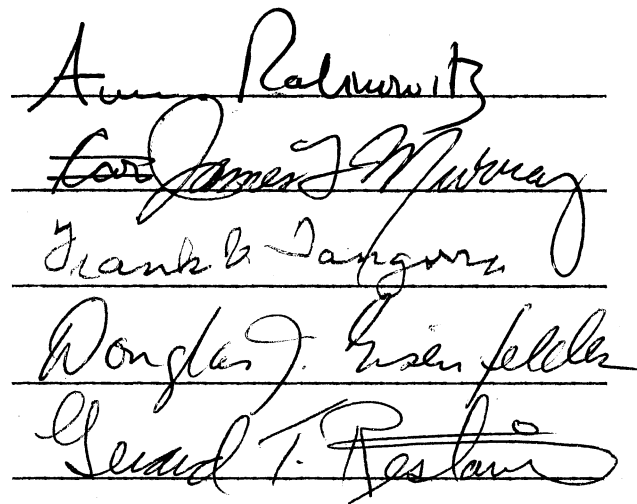 Rabinowitz
James J Murray
Frank
Douglas J. Eisenfelder
Gerard T. Restaino